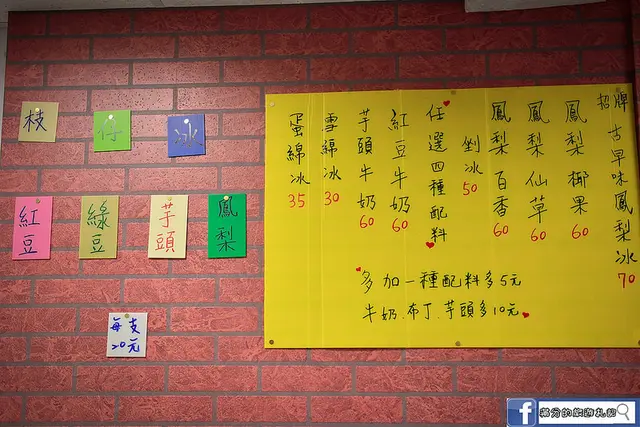 枝仔冰
紅豆
綠豆
芋頭
鳳梨
每支
20元
招牌古早味鳳梨冰 70
鳳梨椰果 60
鳳梨仙草 60
鳳梨百香 60
剉冰 50
任選四種配料
紅豆牛奶 60
芋頭牛奶 60
雪綿冰 30
蛋綿冰 35
多加一種配料多5元
牛奶.布丁.芋頭多10元
滿分的旅遊札記